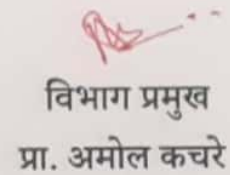 विभाग प्रमुख
प्रा. अमोल कचरे